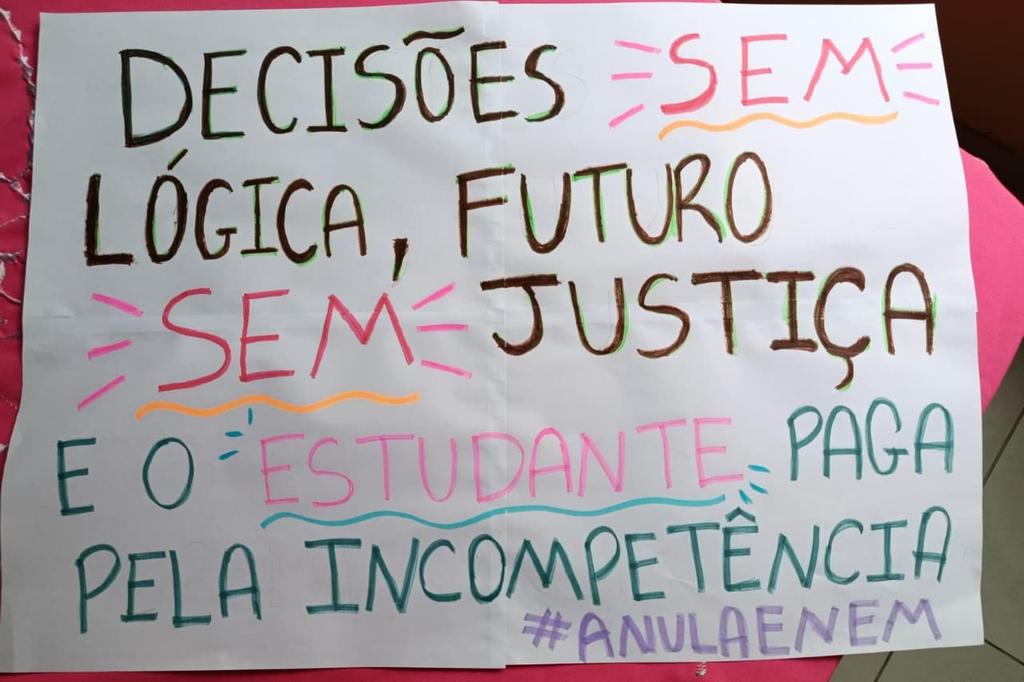 DECISÕES SEM
LÓGICA, FUTURO
SEM JUSTIÇA
E O ESTUDANTE PAGA
PELA INCOMPETÊNCIA
#ANULAENEM